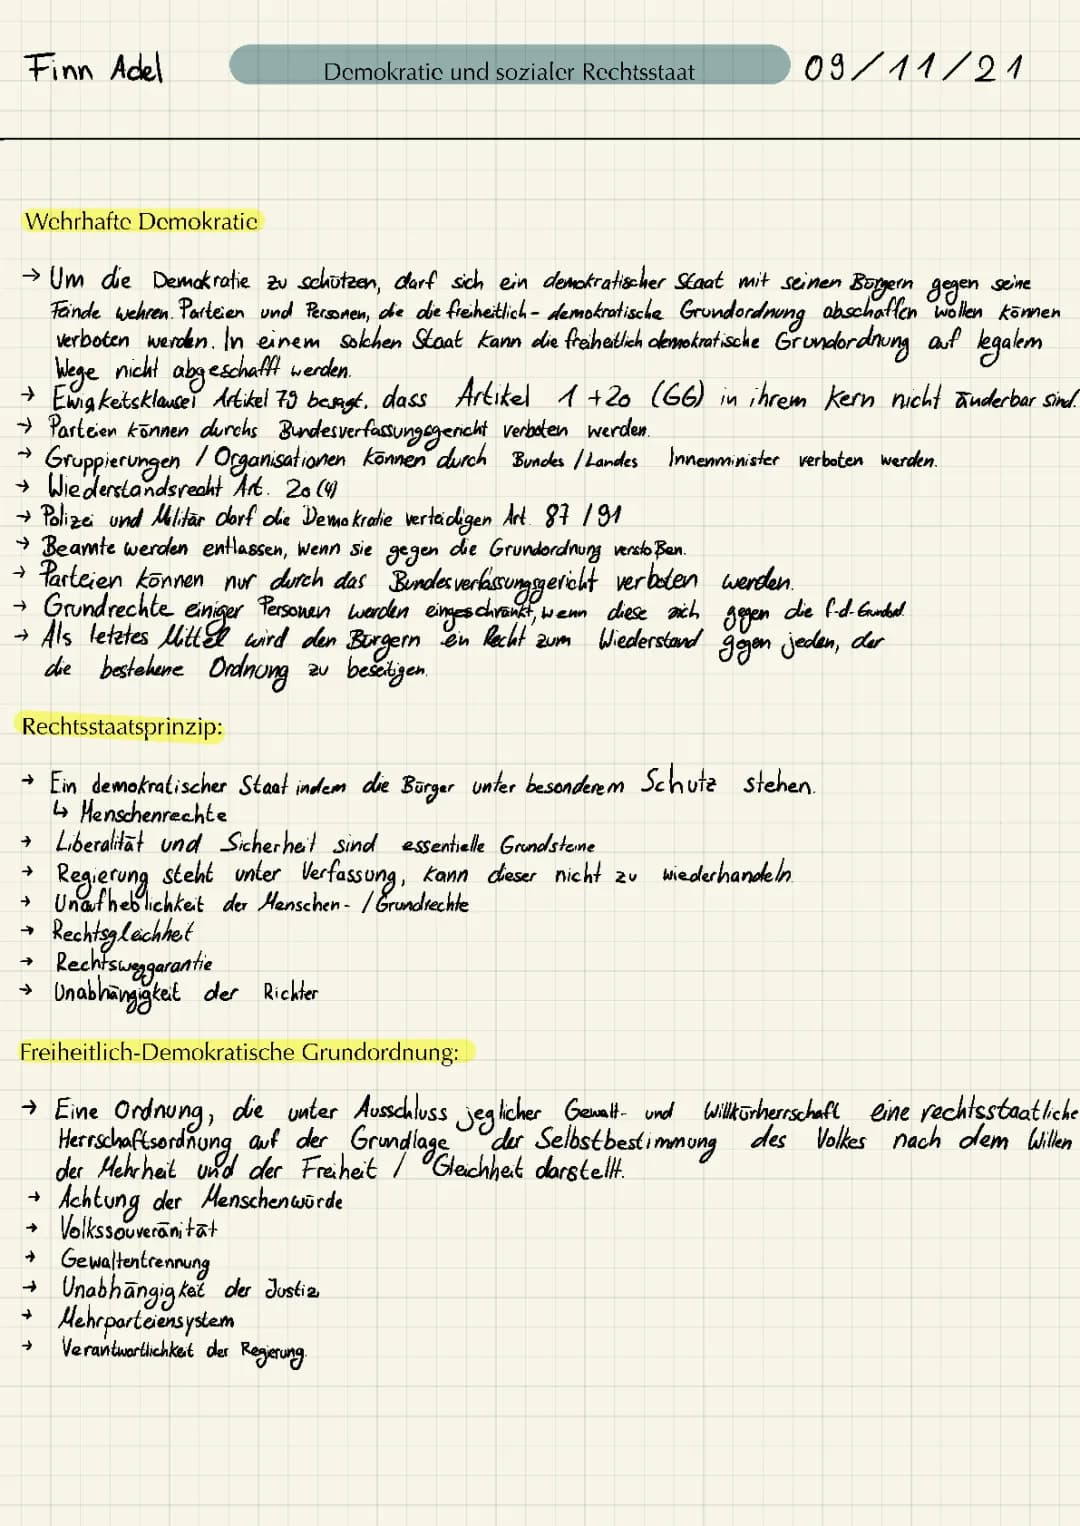 Finn Adel
Demokratie und sozialer Rechtsstaat
09/11/21
Wehrhafte Demokratie
→ Um die Demokratie zu schützen, darf sich ein demokratischer Staat mit seinen Bürgern gegen seine
Feinde wehren. Parteien und Personen, die die freiheitlich-demokratische Grundordnung abschaffen wollen können
verboten werden. In einem solchen Staat kann die freiheitlich demokratische Grundordnung auf legalem
Wege nicht abgeschafft werden.
→ Ewigketsklausel Artikel 79 besagt, dass Artikel 1+20 (GG) in ihrem Kern nicht änderbar sind.
→ Parteien können durchs Bundesverfassungsgericht verboten werden.
→ Gruppierungen / Organisationen können durch Bundes / Landes Innenminister verboten werden.
→ Wiederstandsrecht Art. 20(4)
→ Polizei und Militär darf die Demokratie verteidigen Art. 87 / 91
→ Beamte werden entlassen, wenn sie gegen die Grundordnung verstoßen.
→ Parteien können nur durch das Bundesverfassungsgericht verboten werden.
→ Grundrechte einiger Personen werden eingeschränkt, wenn diese sich gegen die f-d-Grundord.
→ Als letztes Mittel wird den Bürgern ein Recht zum Wiederstand gegen jeden, der
die bestehene Ordnung zu beseitigen.
Rechtsstaatsprinzip:
→ Ein demokratischer Staat indem die Bürger unter besonderem Schutz stehen.
↳ Menschenrechte
→ Liberalität und Sicherheit sind essentielle Grundsteine
→ Regierung steht unter Verfassung, kann dieser nicht zu wiederhandeln.
→ Unafheblichkeit der Menschen- / Grundrechte
→ Rechtsgleichheit
→ Rechtsweggarantie
→ Unabhängigkeit der Richter
Freiheitlich-Demokratische Grundordnung:
→ Eine Ordnung, die unter Ausschluss jeglicher Gewalt- und Willkürherrschaft eine rechtsstaatliche
Herrschaftsordnung auf der Grundlage der Selbstbestimmung des Volkes nach dem Willen
der Mehrheit und der Freiheit / Gleichheit darstellt.
→ Achtung der Menschenwürde
→ Volkssouveränität
→ Gewaltentrennung
→ Unabhängigkeit der Justiz
→ Mehrparteiensystem
→ Verantwortlichkeit der Regierung.